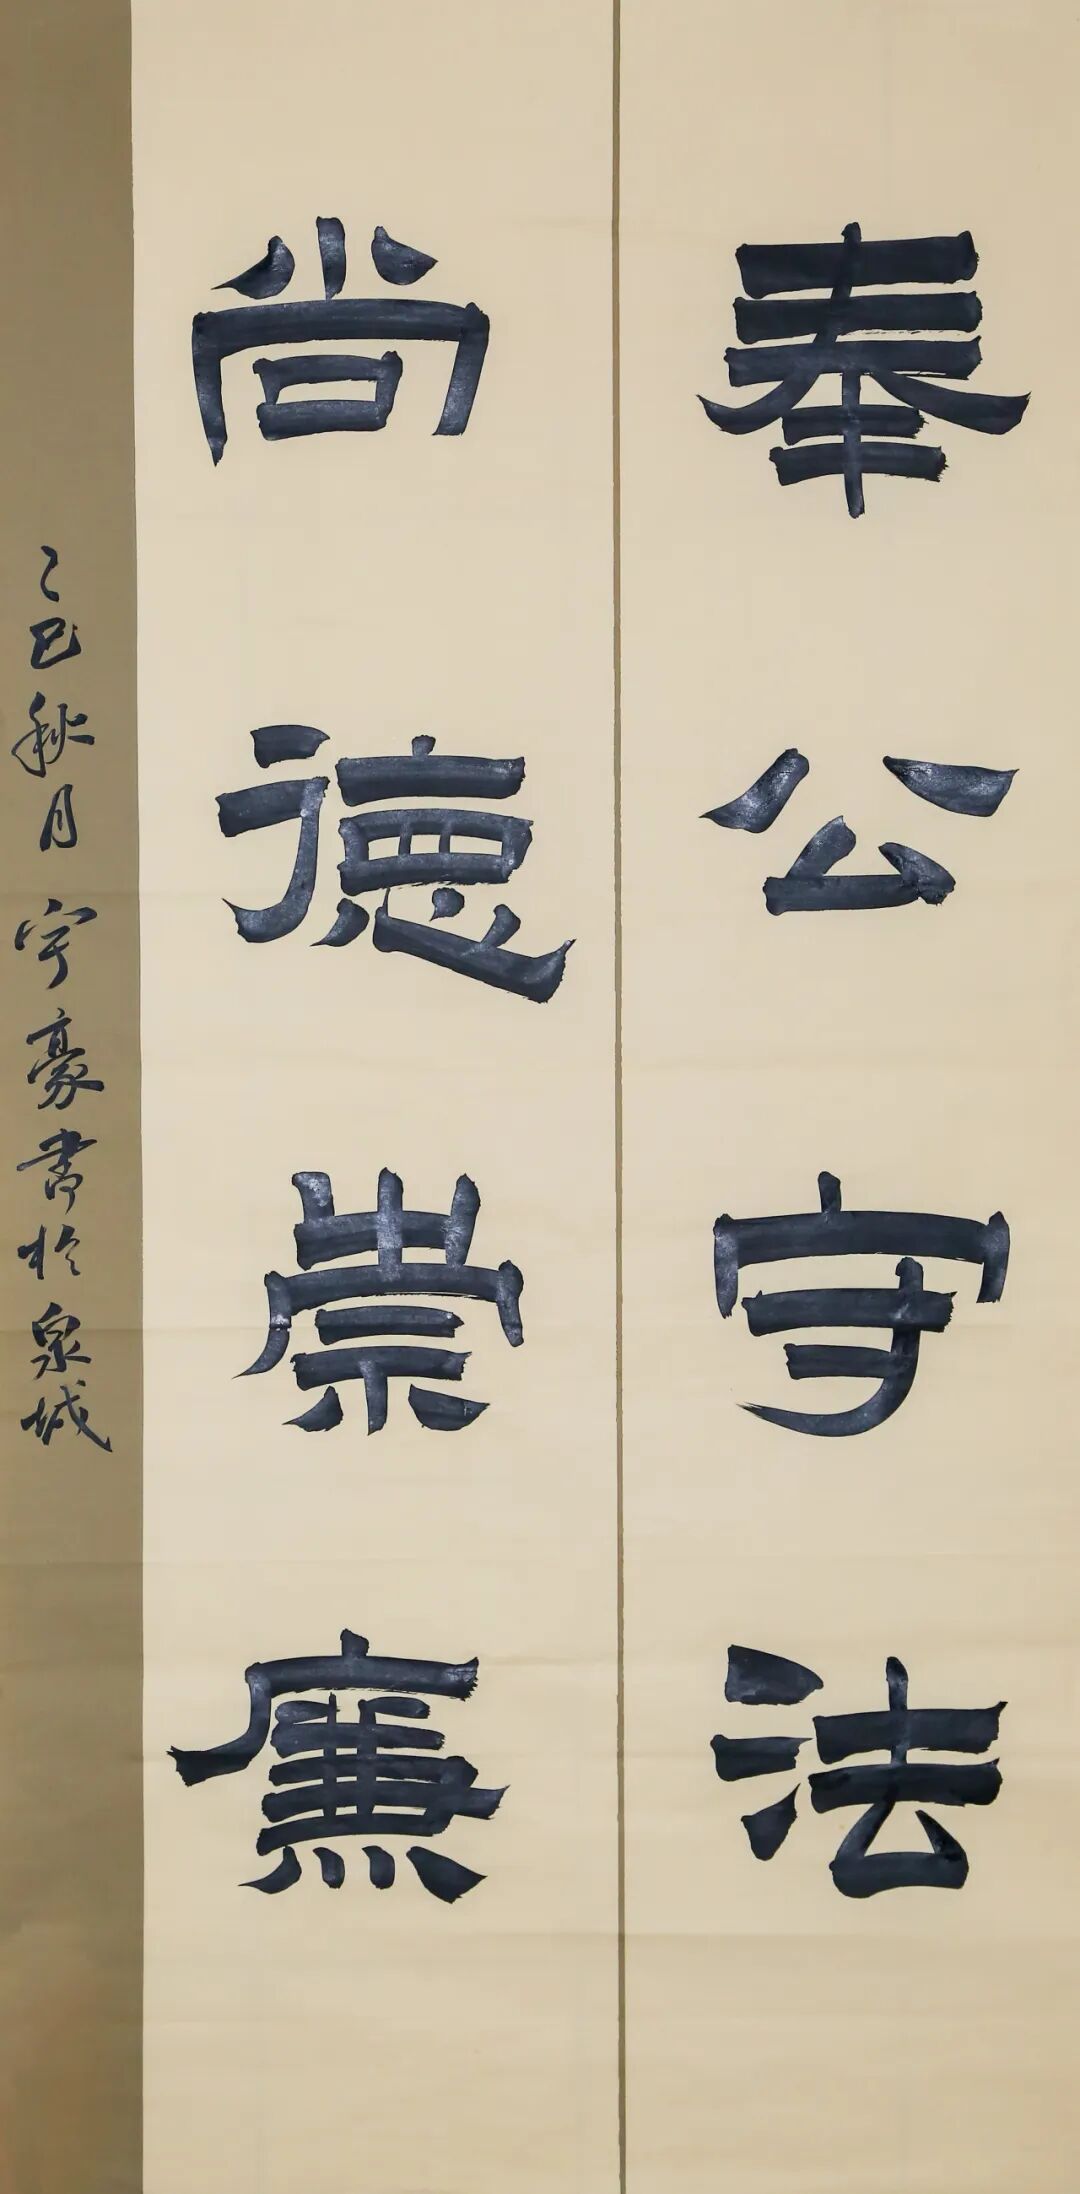 奉公守法
尚德崇廉
乙巳秋月宇豪書於泉城